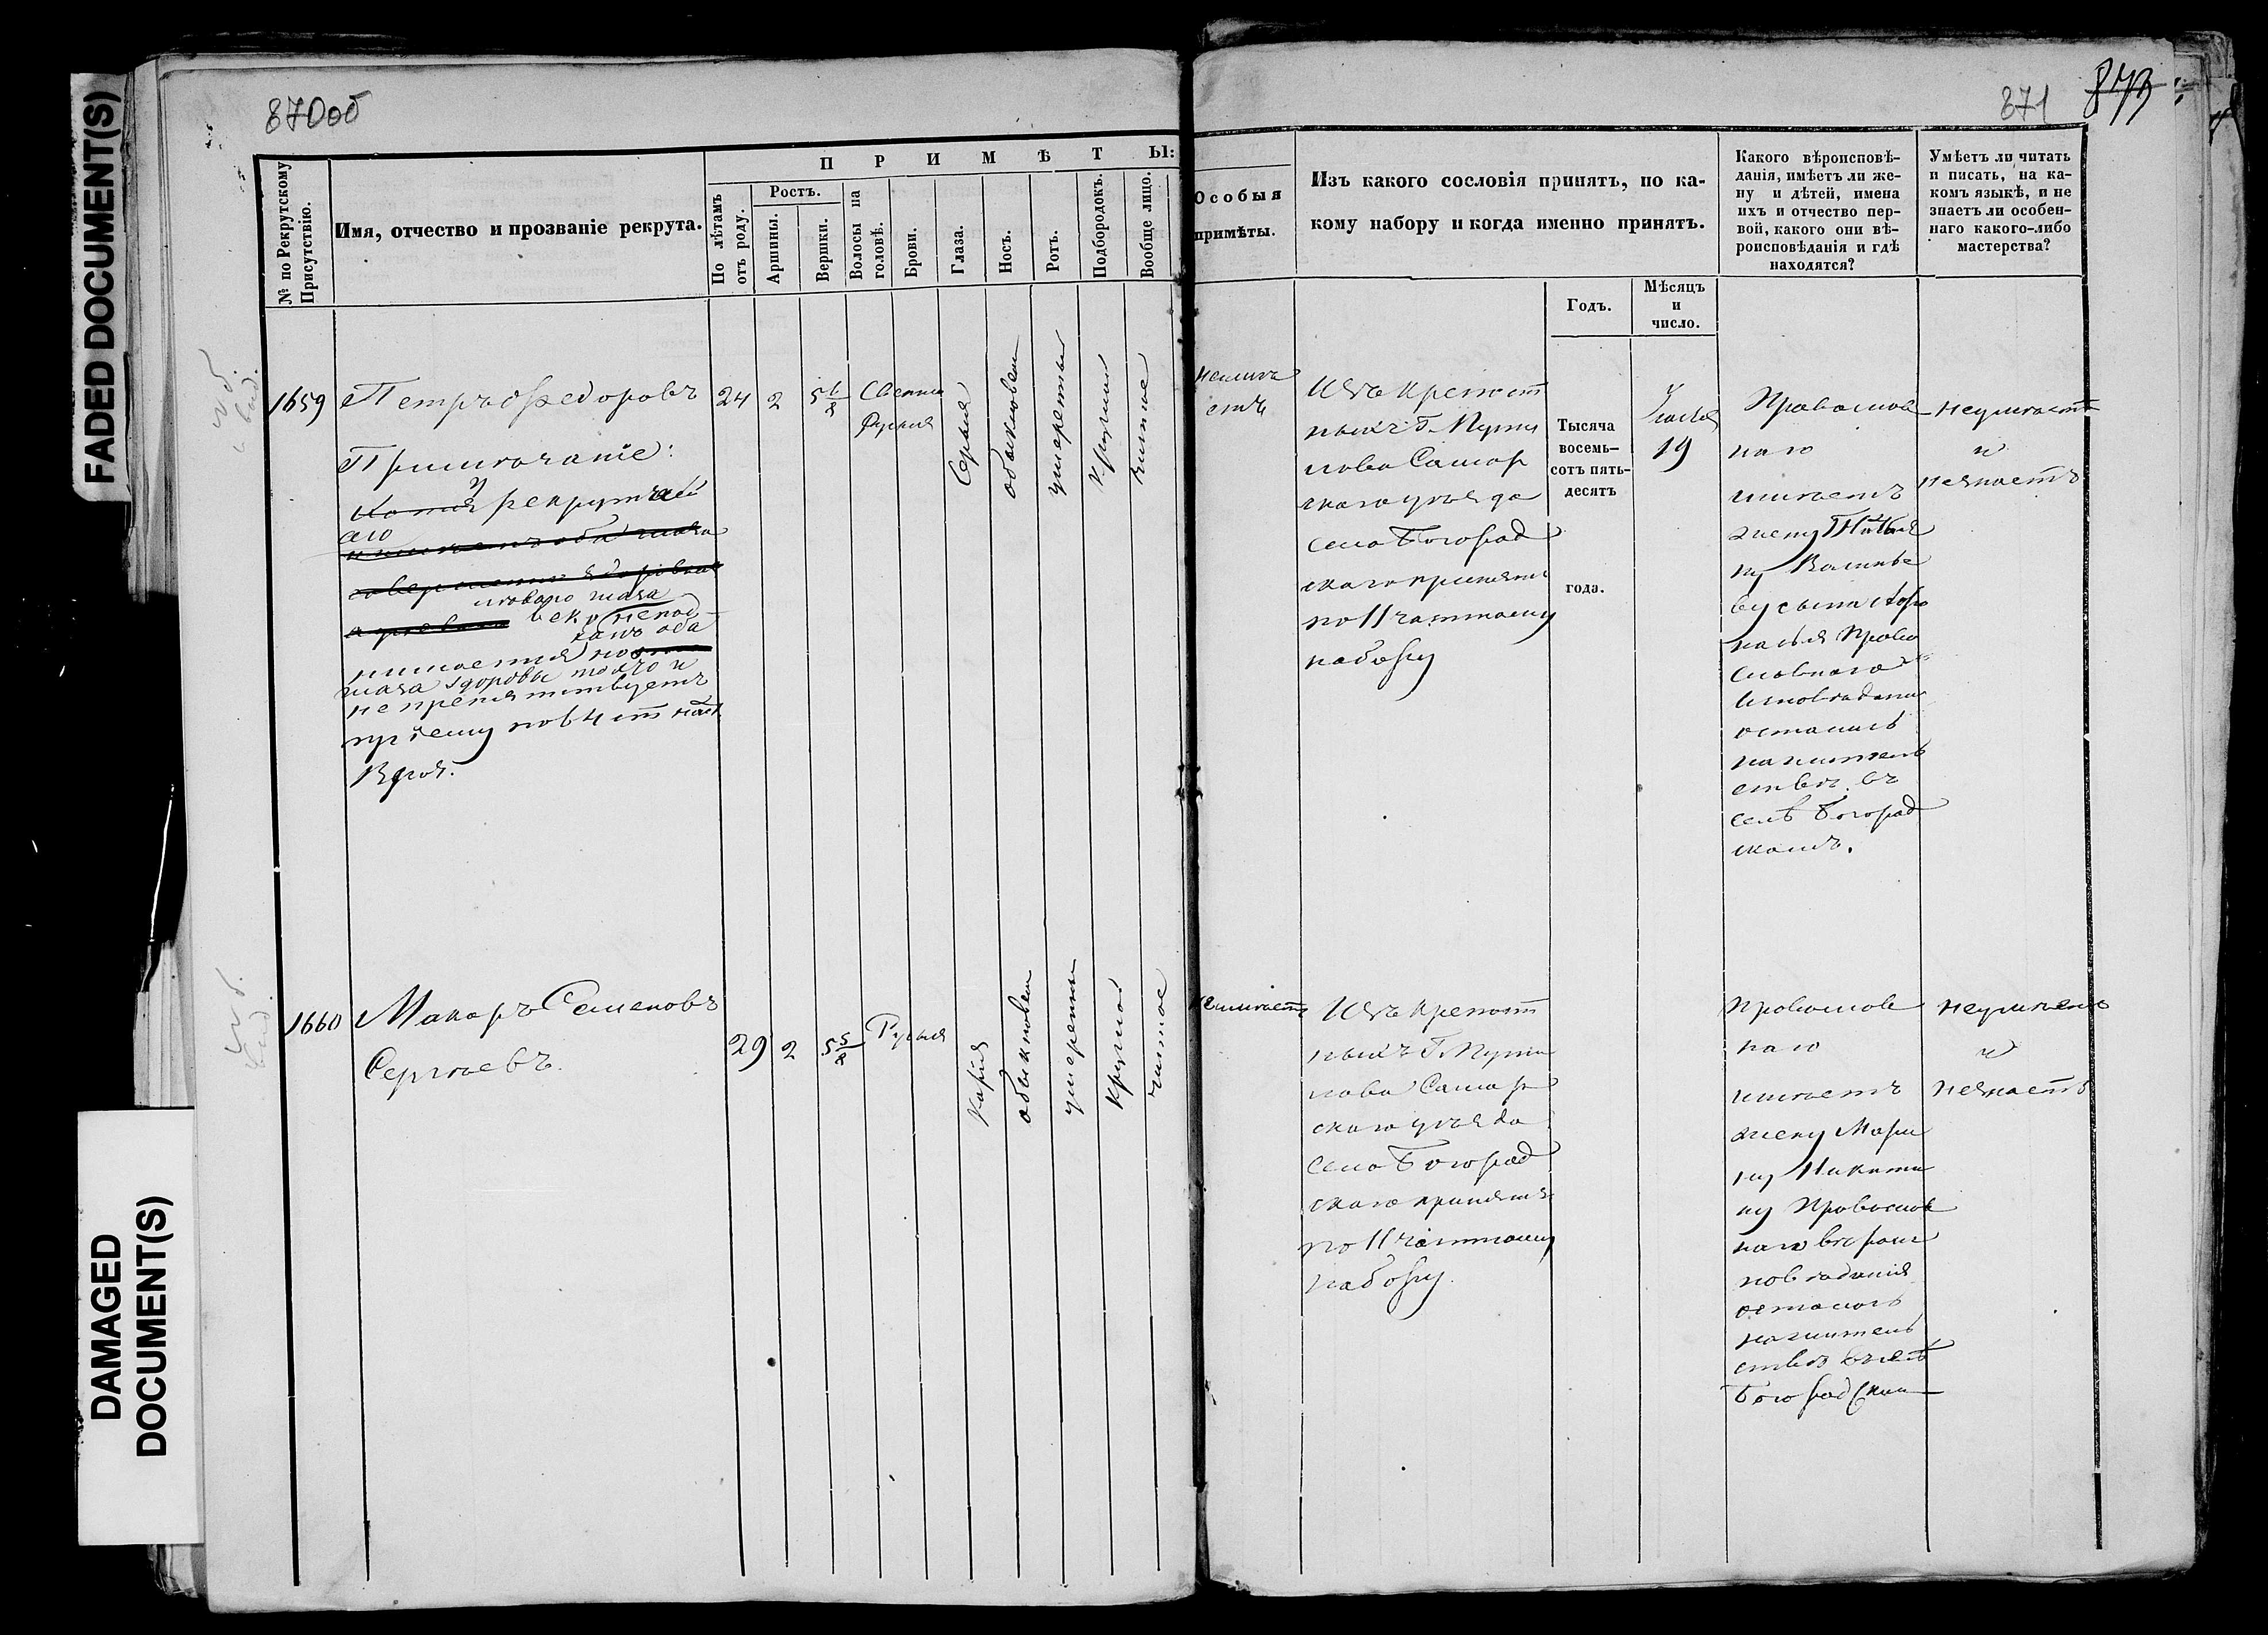 FADED DOCUMENT(S)
DAMAGED
DOCUMENT(S)
870об
871
873
№ по Рекрутскому
Присутствію.
Имя, отчество и прозваніе рекрута.
ПРИМѢТЫ:
По лѣтамъ
отъ роду.
Ростъ.
Аршины.
Вершки.
Волосы на
головѣ.
Брови.
Глаза.
Носъ.
Ротъ.
Подбородокъ.
Вообще лицо.
Особыя
примѣты.
Изъ какого сословія принятъ, по ка-
кому набору и когда именно принятъ.
Годъ.
Мѣсяцъ
и
число.
Какого вѣроисповѣ-
данія, имѣетъ ли же-
ну и дѣтей, имена
ихъ и отчество пер-
вой, какого они вѣ-
роисповѣданія и гдѣ
находятся?
Умѣетъ ли читать
и писать, на ка-
комъ языкѣ, и не
знаетъ ли особен-
наго какого-либо
мастерства?
1659
Петръ Федоровъ
Примѣчаніе:
У рекрута
сего
праваго глаза
веко непод
нимается но оба
глаза здоровы
не препятствуетъ
пріему
24
2
5 6/8
Светло
Русыя
Серыя
обыкновен
умеретый
Круглый
чистое
неимѣ
етъ
Изъ крепост
ныхъ Г. Пути
лова Самар
скаго уѣзда
села Богород
скаго принятъ
по 11 частному
набору
Тысяча
восемь-
сотъ пять-
десятъ
года.
19
Православ
наго
имѣетъ
жену Татья
ну Василье
ву сына Афо
насья Право
славнаго
исповѣданія
остались
на житель
ствѣ въ
селѣ Богород
скомъ.
неумѣетъ
и
незнаетъ
1660
Макаръ Семеновъ
Сергѣевъ.
29
2
5 5/8
Русыя
Карія
обыкновен
умеретый
круглый
чистое
неимѣетъ
Изъ крепост
ныхъ Г. Пути
лова Самар
скаго уѣзда
села Богород
скаго принятъ
по 11 частному
набору.
Православ
наго
имѣетъ
жену Мари
ну Никити
ну Православ
наго вѣроис
повѣданія
осталась
на житель
ствѣ въ селѣ
Богородском
неумѣетъ
и
незнаетъ